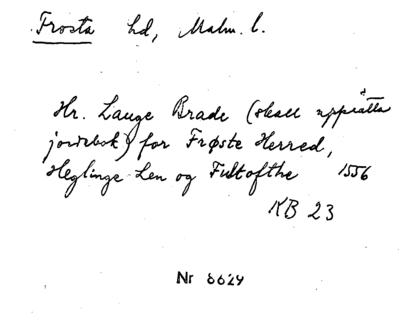 Frosta hd, Malm. l.
Hr. Lauge Brade (skall uppsätta
jordebok) for Frøste Herred,
Heglinge Len og Fultofthe 1556
KB 23
Nr 6629